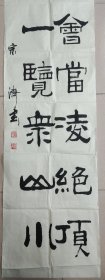 會當淩絕頂
一覽衆山小
宗海書